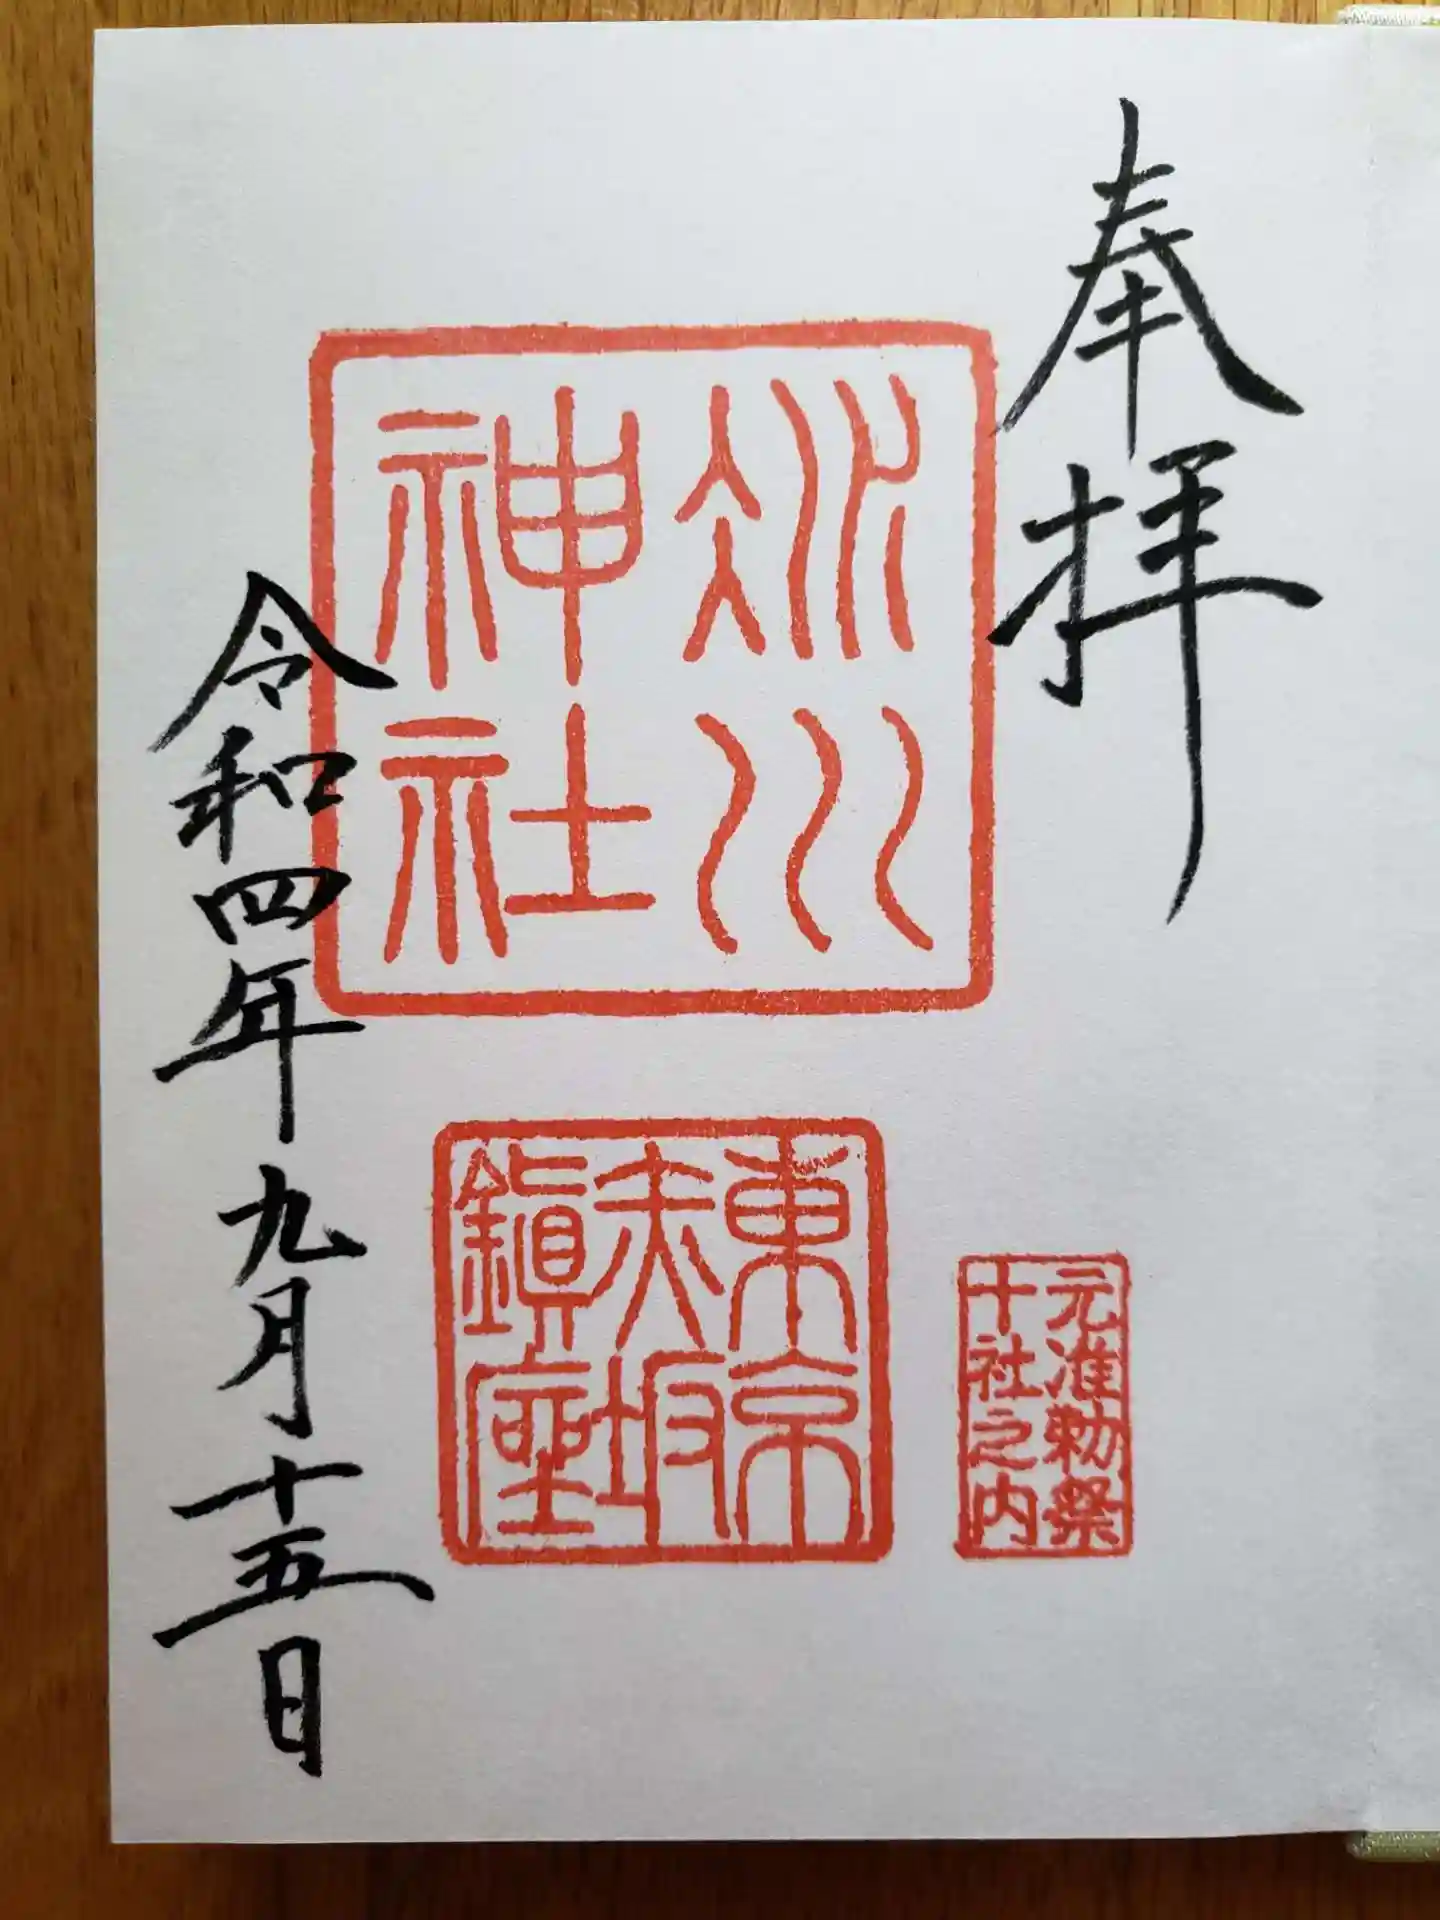 奉拝
氷川
神社
元准勅祭
十社之内
東京
赤坂
鎮座
令和四年九月十五日